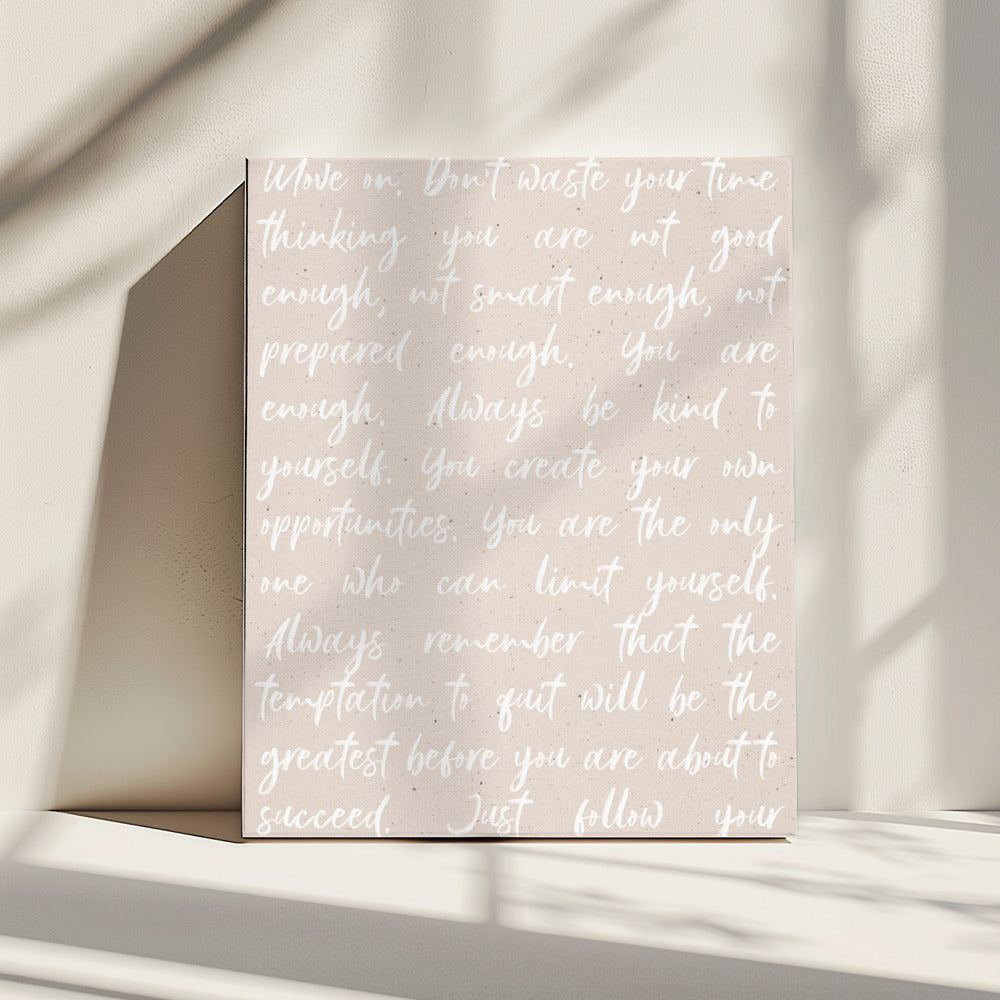 Move on. Don't waste your time
thinking you are not good
enough, not smart enough, not
prepared enough. You are
enough. Always be kind to
yourself. You create your own
opportunities. You are the only
one who can limit yourself.
Always remember that the
temptation to quit will be the
greatest before you are about to
succeed. Just follow your